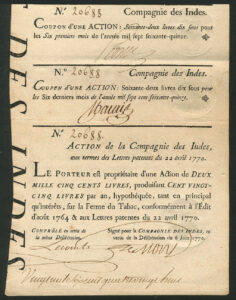 N.º 20688 Compagnie des Indes.
COUPON D'UNE ACTION: Soixante-deux livres dix sous pour
les Six premiers mois de l'année mil sept soixante-quinze.
N.º 20688 Compagnie des Indes.
COUPON D'UNE ACTION: Soixante-deux livres dix sous pour
les Six derniers mois de l'année mil sept cent soixante-quinze.
N.º 20688.
ACTION de la Compagnie des Indes,
aux termes des Lettres patentes du 22 avril 1770.
LE PORTEUR est propriétaire d'une Action de DEUX
MILLE CINQ CENTS LIVRES, produisant CENT VINGT-
CINQ LIVRES par an, hypothéquée, tant en principal
qu'intérêts, sur la Ferme du Tabac, conformément à l'Édit
d'août 1764 & aux Lettres patentes du 22 avril 1770.
CONTRÔLÉ en vertu de
la même Délibération.
Signé pour la COMPAGNIE DES INDES, en
vertu de la Délibération du 6 Juin 1770.
DES INDES